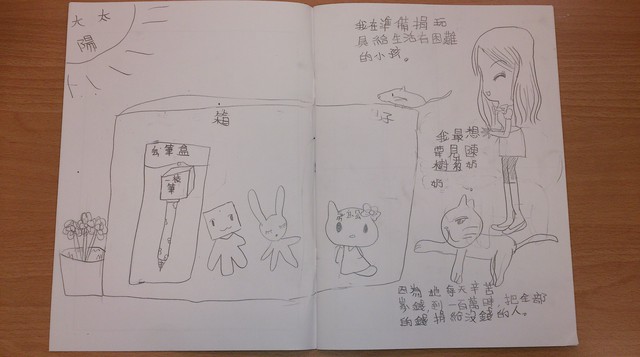 大太
陽
我在準備捐玩
具給生活有困難
的小孩。
箱子
鉛筆盒
筆
我最想
要見陳
樹菊奶
奶
因為她每天辛苦
的錢捐給沒錢的人。